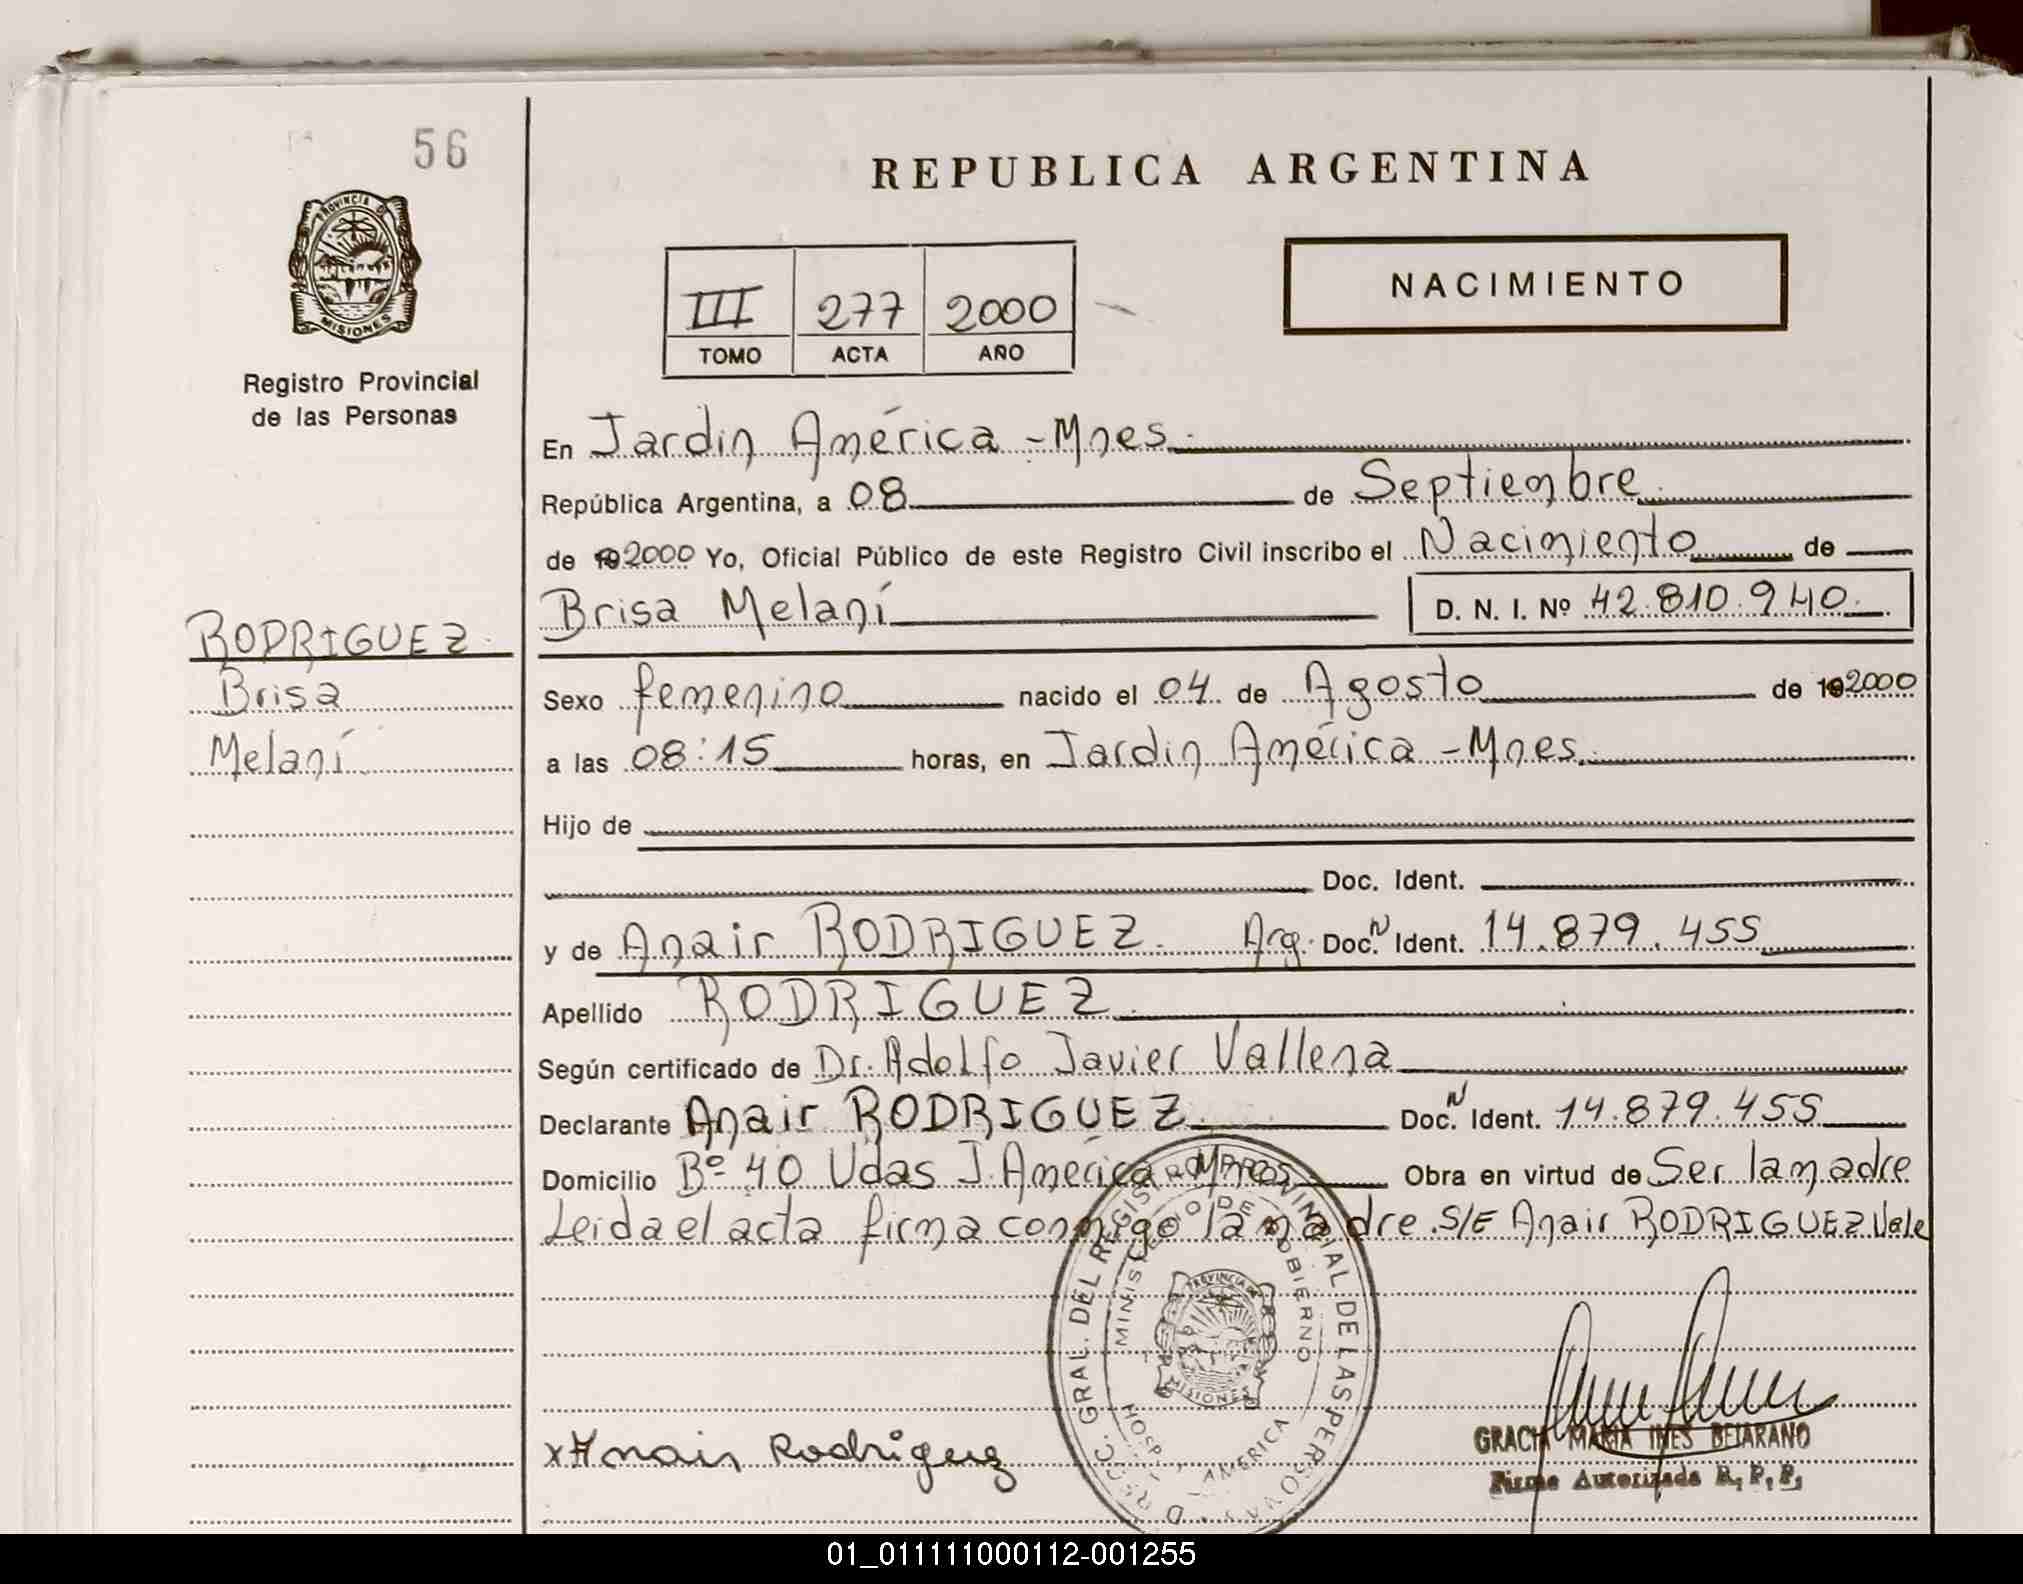 56
REPUBLICA ARGENTINA
PROVINCIA DE
MISIONES
Registro Provincial
de las Personas
III 277 2000
TOMO ACTA AÑO
NACIMIENTO
En Jardin América - Mnes.
República Argentina, a 08 de Septiembre
de 19 2000 Yo, Oficial Público de este Registro Civil inscribo el Nacimiento de
Brisa Melaní D. N. I. Nº 42.810.940.
RODRIGUEZ.
Brisa
Melaní.
Sexo femenino nacido el 04 de Agosto de 19 2000
a las 08:15 horas, en Jardin América - Mnes.
Hijo de
Doc. Ident.
y de Anair RODRIGUEZ. Arg. Doc. N Ident. 14.879.455
Apellido RODRIGUEZ.
Según certificado de Dr. Adolfo Javier Vallena
Declarante Anair RODRIGUEZ. Doc. N Ident. 14.879.455
Domicilio Bº 40 Udas J. América Mnes Obra en virtud de Ser la madre
Leida el acta firma conmigo la madre. S/E Anair RODRIGUEZ Vale
GRAL. DEL REGISTRO PROVINCIAL DE LAS PERSONAS
MINISTERIO DE GOBIERNO
PROVINCIA DE
MISIONES
AMERICA
x Anair Rodriguez
GRACIA MARIA INES BEJARANO
Firma Autorizada R. P. P.
01_011111000112-001255